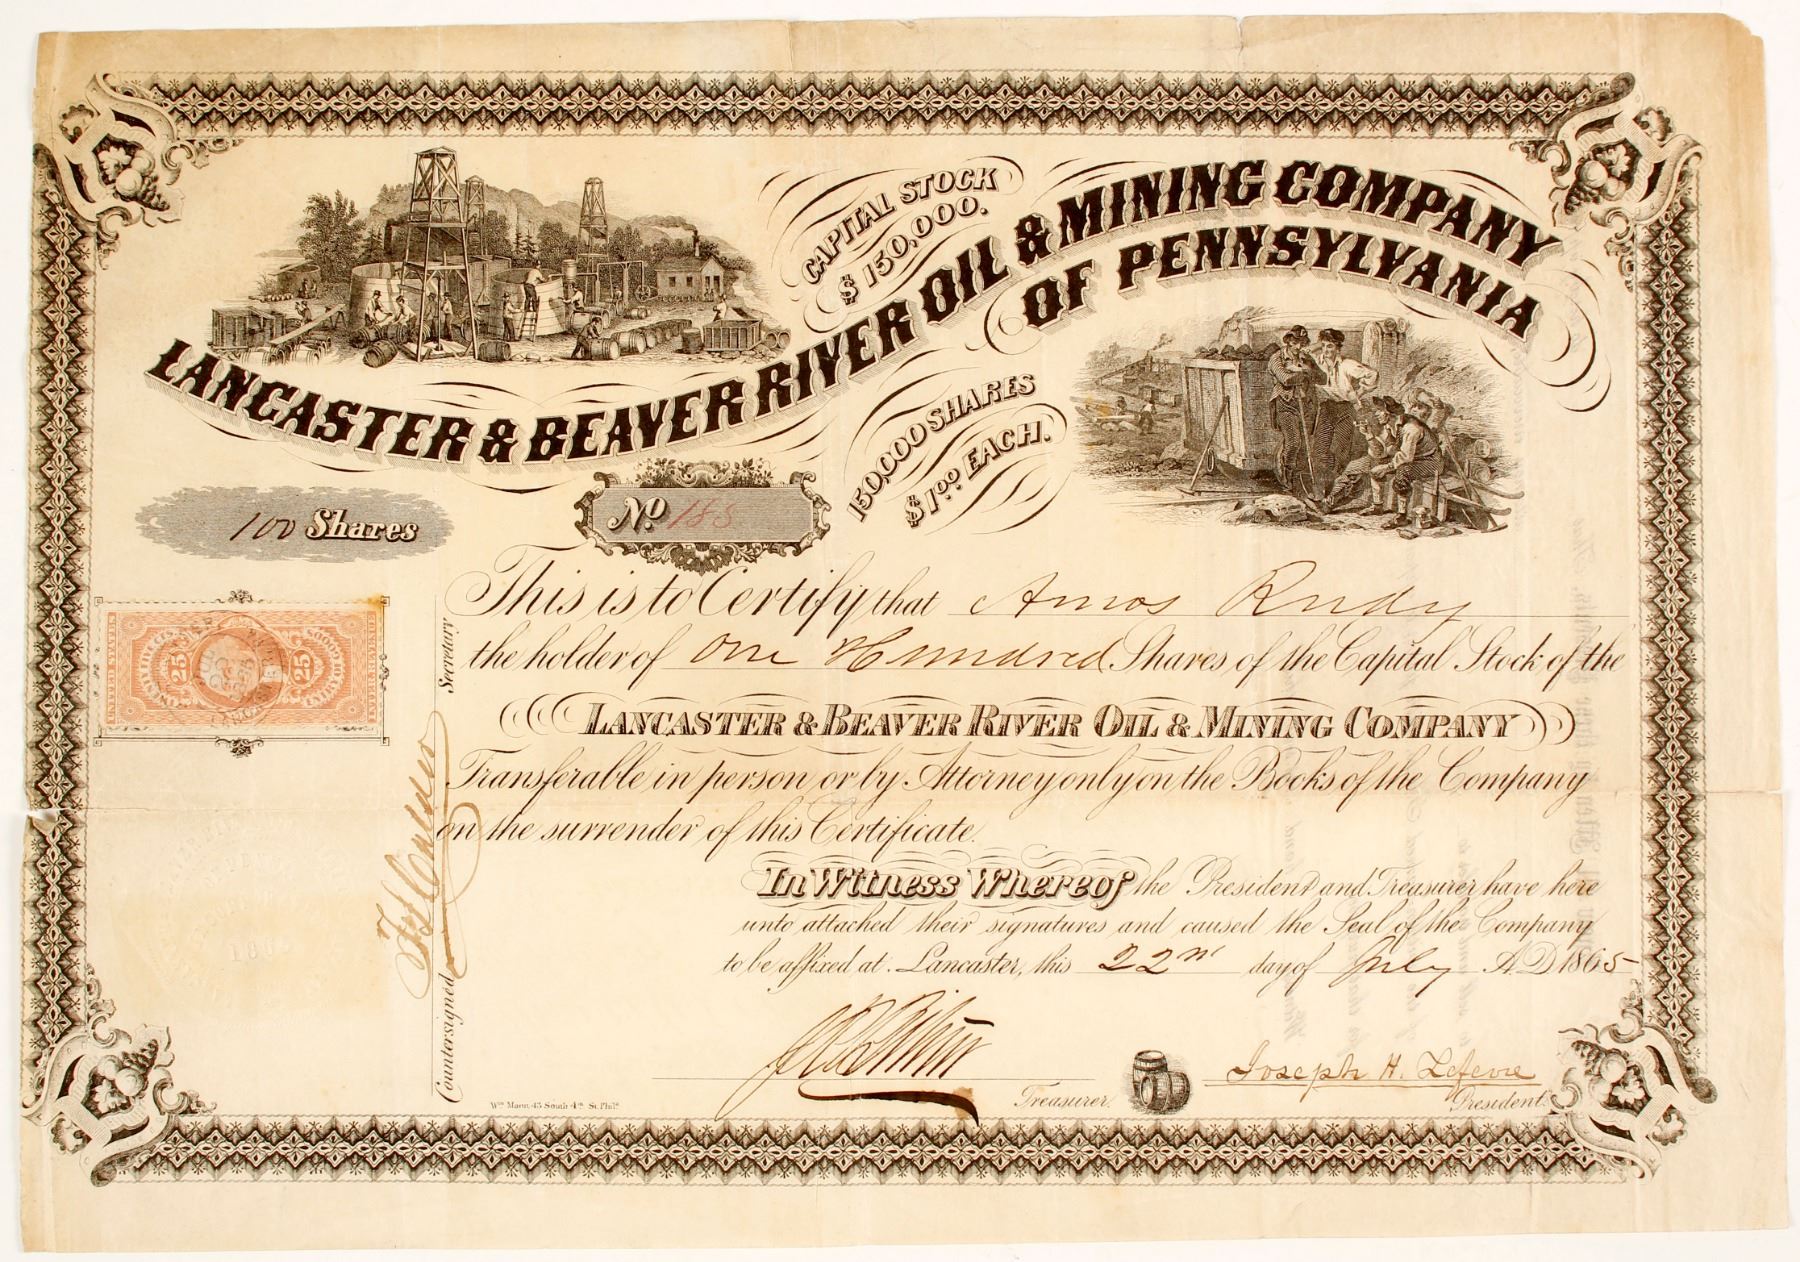 CAPITAL STOCK
$150,000.
LANCASTER & BEAVER RIVER OIL & MINING COMPANY
OF PENNSYLVANIA
150,000 SHARES
$1.00 EACH.
100 Shares
No.
This is to Certify that Amos Rudy
the holder of One Hundred Shares of the Capital Stock of the
LANCASTER & BEAVER RIVER OIL & MINING COMPANY
Transferable in person or by Attorney only on the Books of the Company
on the surrender of this Certificate.
In Witness Whereof the President and Treasurer have here
unto attached their signatures and caused the Seal of the Company
to be affixed at Lancaster, this 22nd day of July A.D. 1865
Joseph H. Lefevre
Treasurer.
President.
Countersigned
Secretary
UNITED STATES
INTER. REVENUE
25
25
Wm. Mann, 43 South 4th St. Phila.